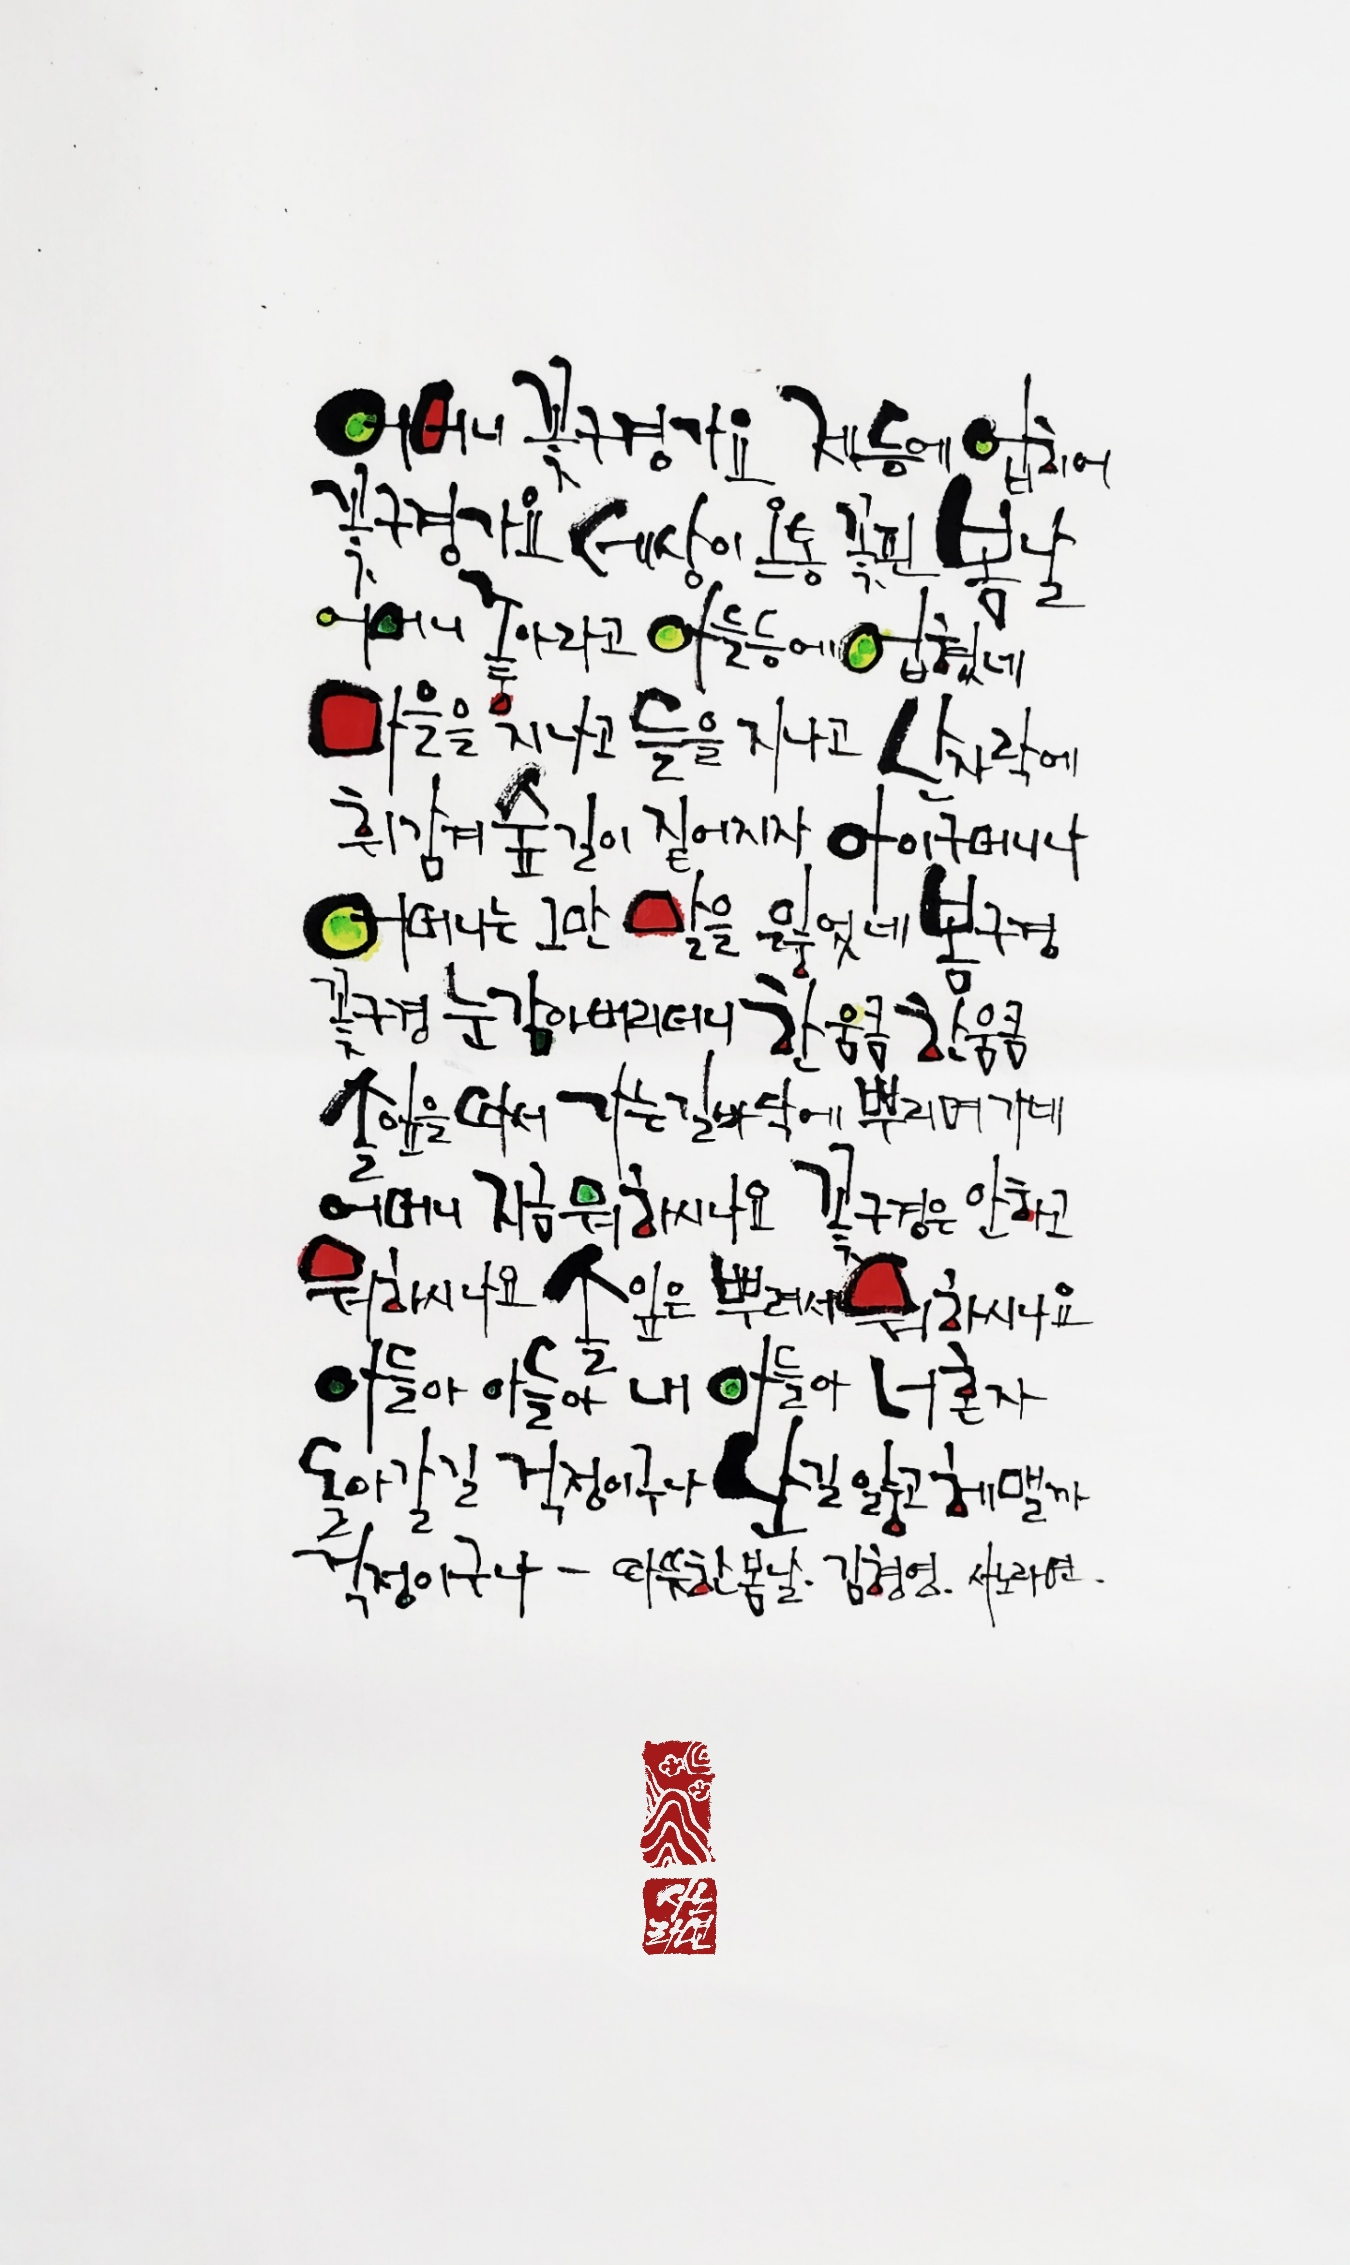 어머니 꽃구경가요 제등에 업히어
꽃구경가요 세상이 온통 꽃핀 봄날
어머니 좋아라고 아들등에 업혔네
마을을 지나고 들을 지나고 산자락에
휘감겨 숲길이 짙어지자 아이구머니나
어머니는 그만 말을 잃었네 봄구경
꽃구경 눈감아버리더니 한움큼 한움큼
솔잎을 따서 가는길바닥에 뿌리며가네
어머니 지금 뭐하시나요 꽃구경은 안하고
뭐하시나요 솔잎은 뿌려서 뭐하시나요
아들아 아들아 내 아들아 너혼자
돌아갈길 걱정이구나 산길 잃고 헤맬까
걱정이구나 - 따뜻한봄날. 김형영. 사노라면.
사노
라면